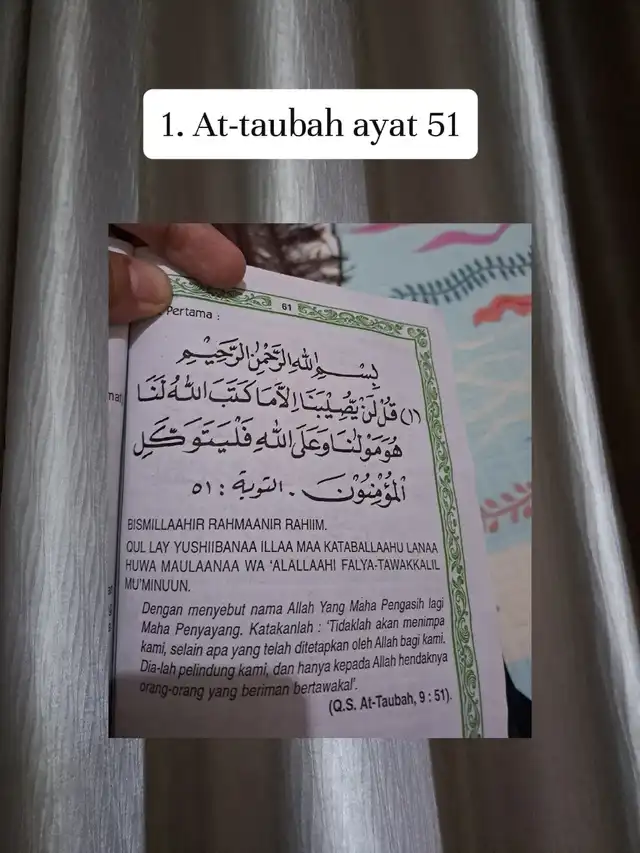 1. At-taubah ayat 51
61
Pertama :
بِسْمِ اللهِ الرَّحْمٰنِ الرَّحِيْمِ
(١) قُلْ لَنْ يُّصِيْبَنَا اِلاَّ مَا كَتَبَ اللهُ لَنَا
هُوَ مَوْلٰنَا وَعَلَى اللهِ فَلْيَتَوَكَّلِ
الْمُؤْمِنُوْنَ . التوبة : ٥١
BISMILLAAHIR RAHMAANIR RAHIIM.
QUL LAY YUSHIIBANAA ILLAA MAA KATABALLAAHU LANAA
HUWA MAULAANAA WA 'ALALLAAHI FALYA-TAWAKKALIL
MU'MINUUN.
Dengan menyebut nama Allah Yang Maha Pengasih lagi
Maha Penyayang. Katakanlah : 'Tidaklah akan menimpa
kami, selain apa yang telah ditetapkan oleh Allah bagi kami.
Dia-lah pelindung kami, dan hanya kepada Allah hendaknya
orang-orang yang beriman bertawakal'.
(Q.S. At-Taubah, 9 : 51).